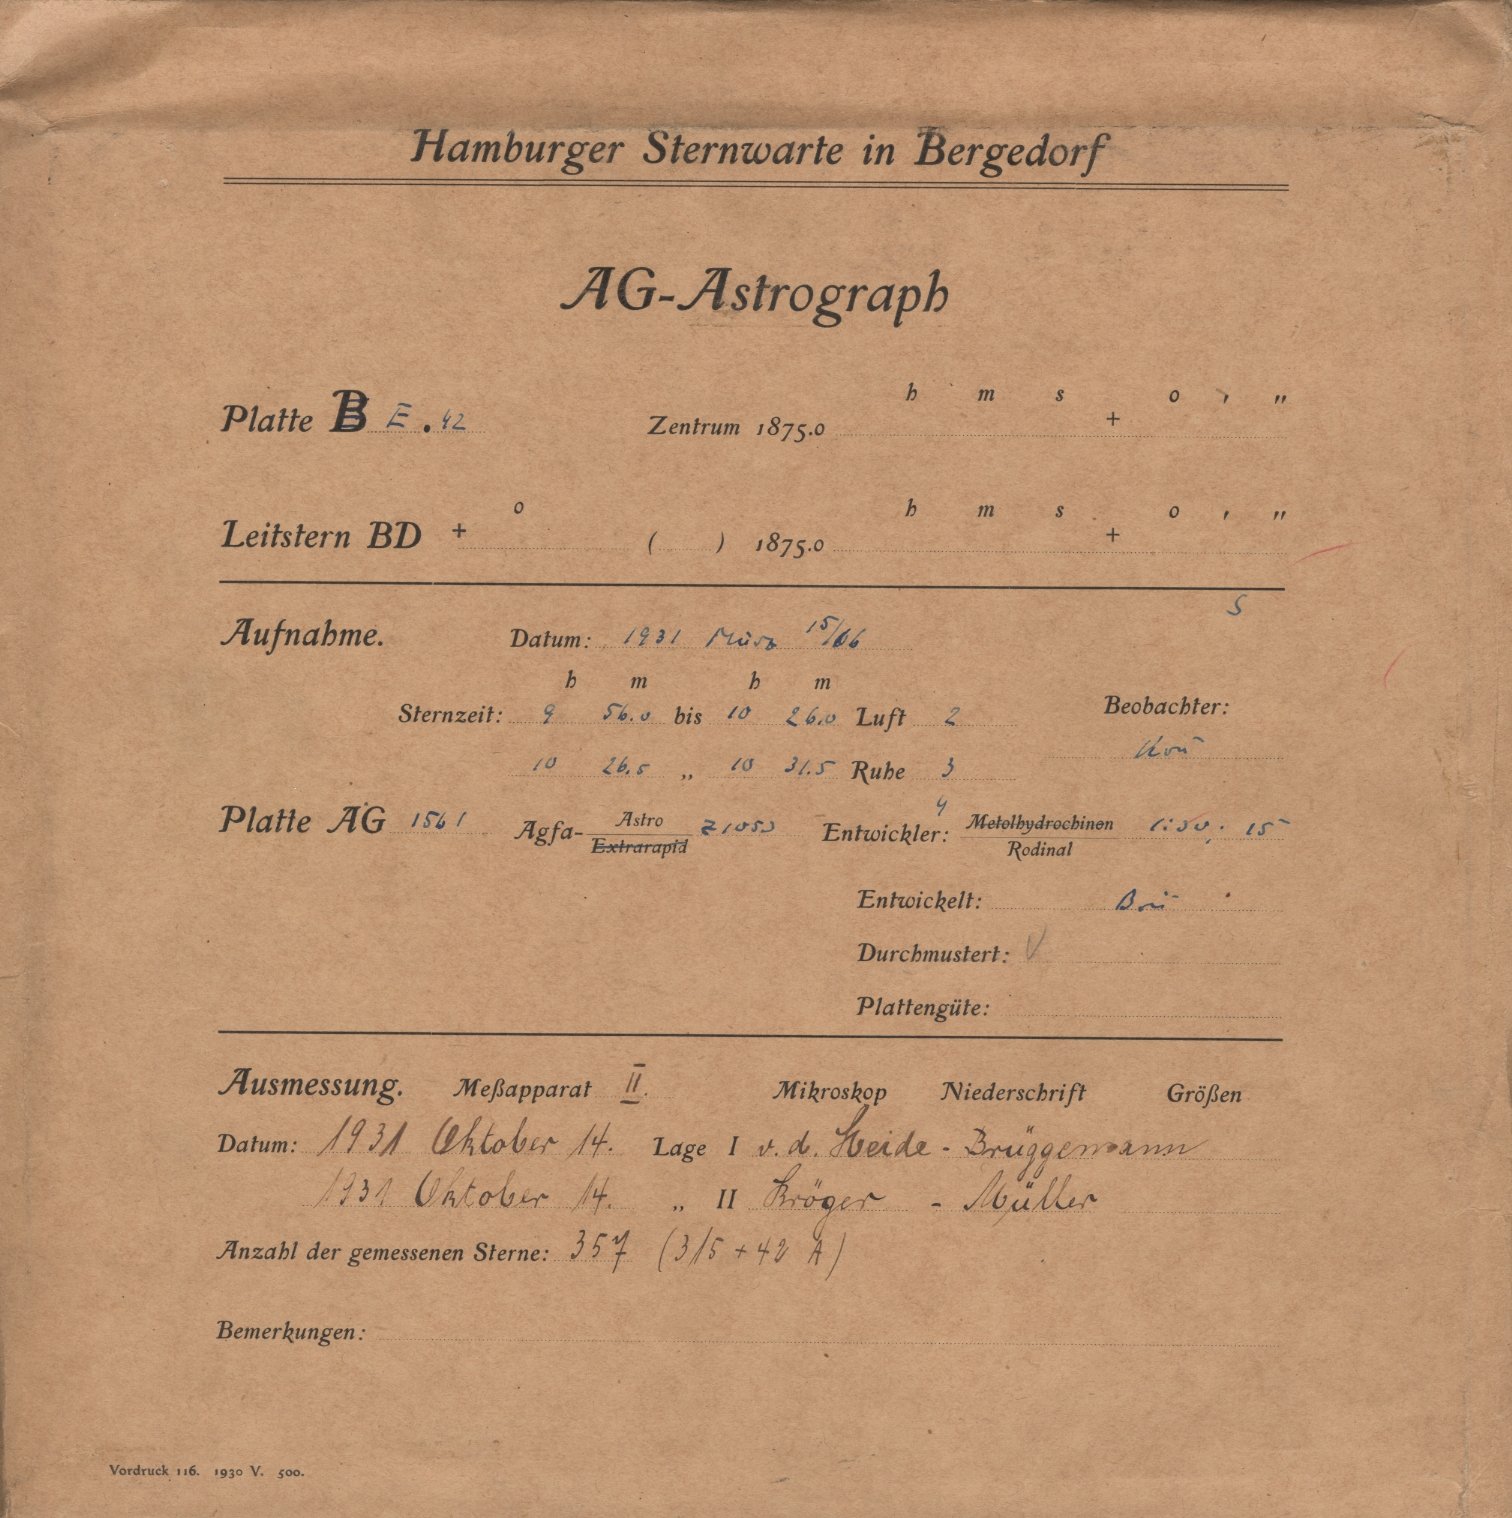 Hamburger Sternwarte in Bergedorf
AG-Astrograph
h m s o , „
Platte B E . 42 Zentrum 1875.0 +
o h m s o , „
Leitstern BD + ( ) 1875.0 +
S
Aufnahme. Datum: 1931 März 15/
h m h m
Sternzeit: 9 56.0 bis 10 26.0 Luft 2 Beobachter:
10 26.5 „ 10 31.5 Ruhe 3
Platte AG 1561 Agfa- Astro Entwickler: Metolhydrochinon 15
Extrarapid Rodinal
Entwickelt:
Durchmustert: V
Plattengüte:
Ausmessung. Meßapparat II. Mikroskop Niederschrift Größen
Datum: 1931 Oktober 14. Lage I v. d. Heide - Brüggemann
1931 Oktober 14. „ II Kröger - Müller
Anzahl der gemessenen Sterne: 357 (315 + 42 A)
Bemerkungen:
Vordruck 116. 1930 V. 500.